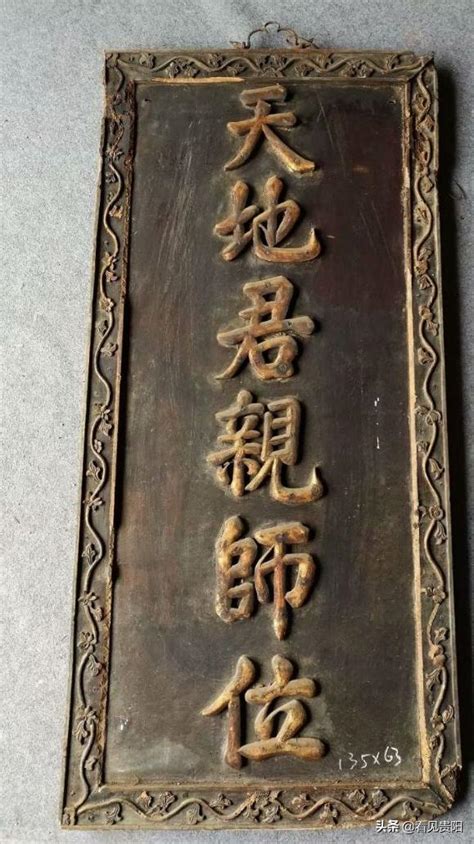 天地君親師位
135×63
头条 @石见贵阳